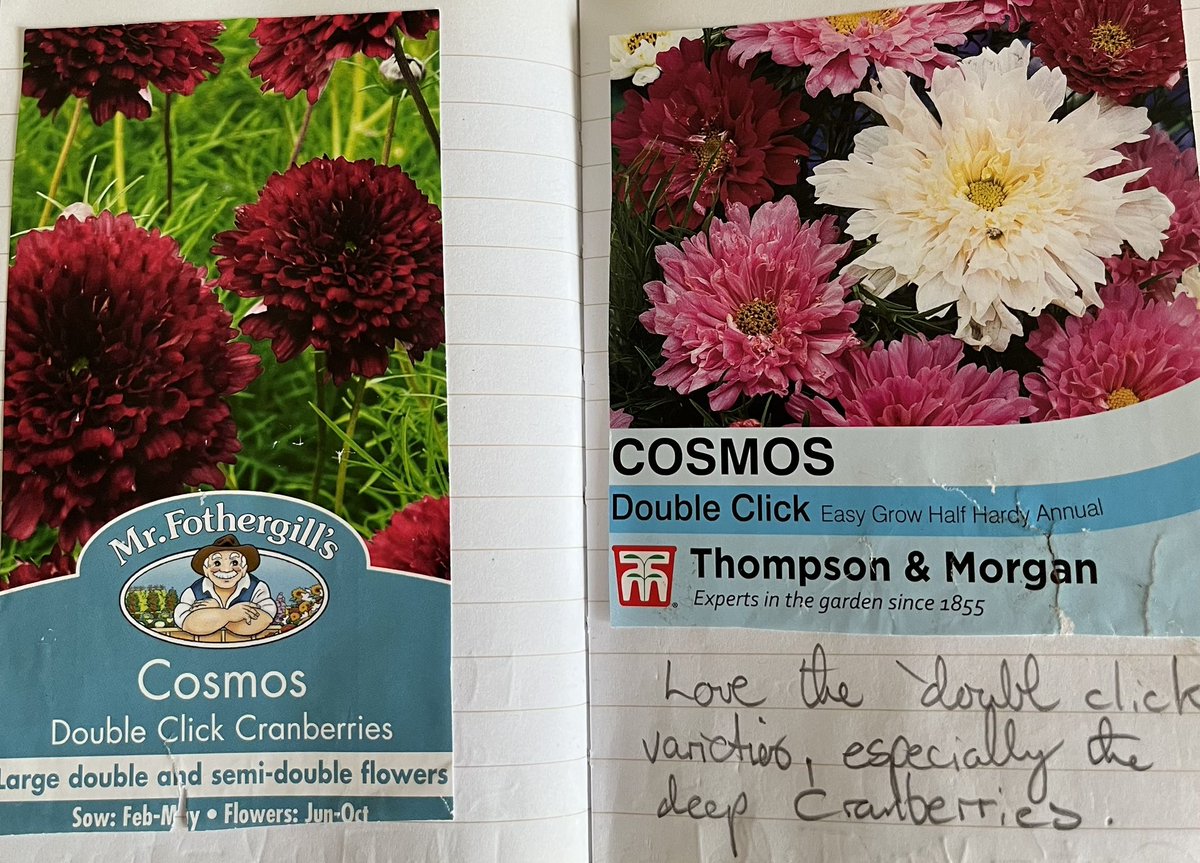 Mr. Fothergill's
Cosmos
Double Click Cranberries
Large double and semi-double flowers
Sow: Feb-May • Flowers: Jun-Oct
COSMOS
Double Click Easy Grow Half Hardy Annual
Thompson & Morgan
Experts in the garden since 1855
Love the 'doubl click
varieties, especially the
deep Cranberries.